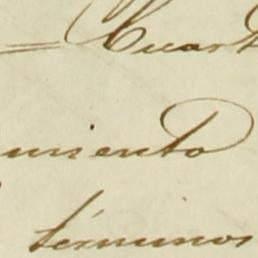 = Cuart
umiento
términos